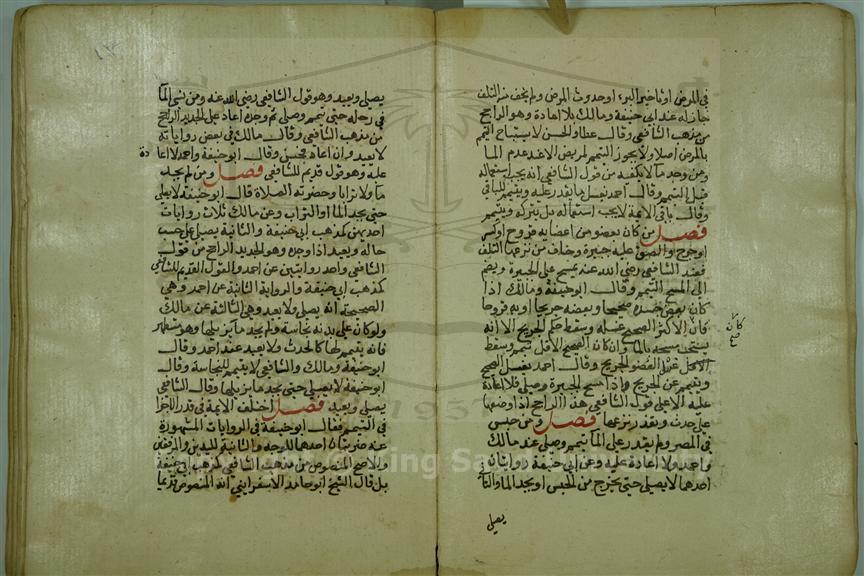 في المرض او تاخير البرء او حدوث المرض ولم يخف منه التلف
جاز له عند ابي حنيفة ومالك بلا اعادة وهو الراجح
من مذهب الشافعي وقال عطاء والحسن لا يستباح التيمم
بالمرض اصلا ولا يجوز التيمم لمريض الا عند عدم الما
ومن وجد ما لا يكفيه من قول الشافعي انه يجب استعماله
قبل التيمم وقال احمد يغسل ما يقدر عليه ويتيمم للباقي
وقال باقي الايمة لا يجب استعماله بل يتركه ويتيمم
فصل من كان بعضو من اعضايه قروح او كسر
او جرح والصق عليه جبيرة وخاف من نزعها التلف
فعند الشافعي رضي الله عنه يمسح على الجبيرة ويضم
الى المسح التيمم وقال ابو حنيفة ومالك اذا
كان بعض جسده صحيحا وبعضه جريحا او به قروحا
فان الاكثر الصحيح غسله وسقط حكم الجريح الا انه
يستحب مسحه بالما وان كان الصحيح الاقل تيمم وسقط
غسل العضو الجريح وقال احمد يغسل الصحيح
ويتيمم عن الجريح واذا مسح الجبيرة وصلى فلا اعادة
عليه الا على قول الشافعي هذا الراجح اذا وضعها
على حدث وتعذر نزعها فصل ومن حبس
في المصر ولم يقدر على الما تيمم وصلى عند مالك
واحمد ولا اعادة عليه وعن ابي حنيفة روايتان
احدهما لا يصلي حتى يخرج من الحبس او يجد الما والثانية
يصلي
كان
صح
يصلي ويعيد وهو قول الشافعي رضي الله عنه ومن نسي الما
في رحله حتى تيمم وصلى ثم وجده اعاد على الجديد الراجح
من مذهب الشافعي وقال مالك في بعض رواياته
لا يعيد وان اعاد فحسن وقال ابو حنيفة واحمد لا اعا
دة
عليه وهو قول قديم للشافعي فصل ومن لم يجد
ما ولا ترابا وحضرته الصلاة قال ابو حنيفة لا يصلي
حتى يجد الما او التراب وعن مالك ثلاث روايات
احديهن كمذهب ابي حنيفة والثانية يصلي على حسب
حاله ويعيد اذا وجده وهو الجديد الراجح من قول
الشافعي واحد روايتين عن احمد والقول القديم للشافعي
كمذهب ابي حنيفة والرواية الثانية عن احمد وهي
الصحيحة انه يصلي ولا يعيد وهي الثالثة عن مالك
ولو كان على بدنه نجاسة ولم يجد ما يزيلها وهو متطهر
فانه يتيمم لها كالحدث ولا يعيد عند احمد وقال
ابو حنيفة ومالك والشافعي لا يتيمم للنجاسة وقال
ابو حنيفة لا يصلي حتى يجد ما يزيلها وقال الشافعي
يصلي ويعيد فصل اختلف الايمة في قدر الاجزا
في التيمم فقال ابو حنيفة في الروايات المشهورة
عنه ضربتان احدها للوجه والثانية لليدين والمرفقين
والاصح المنصوص من مذهب الشافعي كمذهب ابي حنيفة
بل قال الشيخ ابو حامد الاسفرايني انه المنصوص قديما